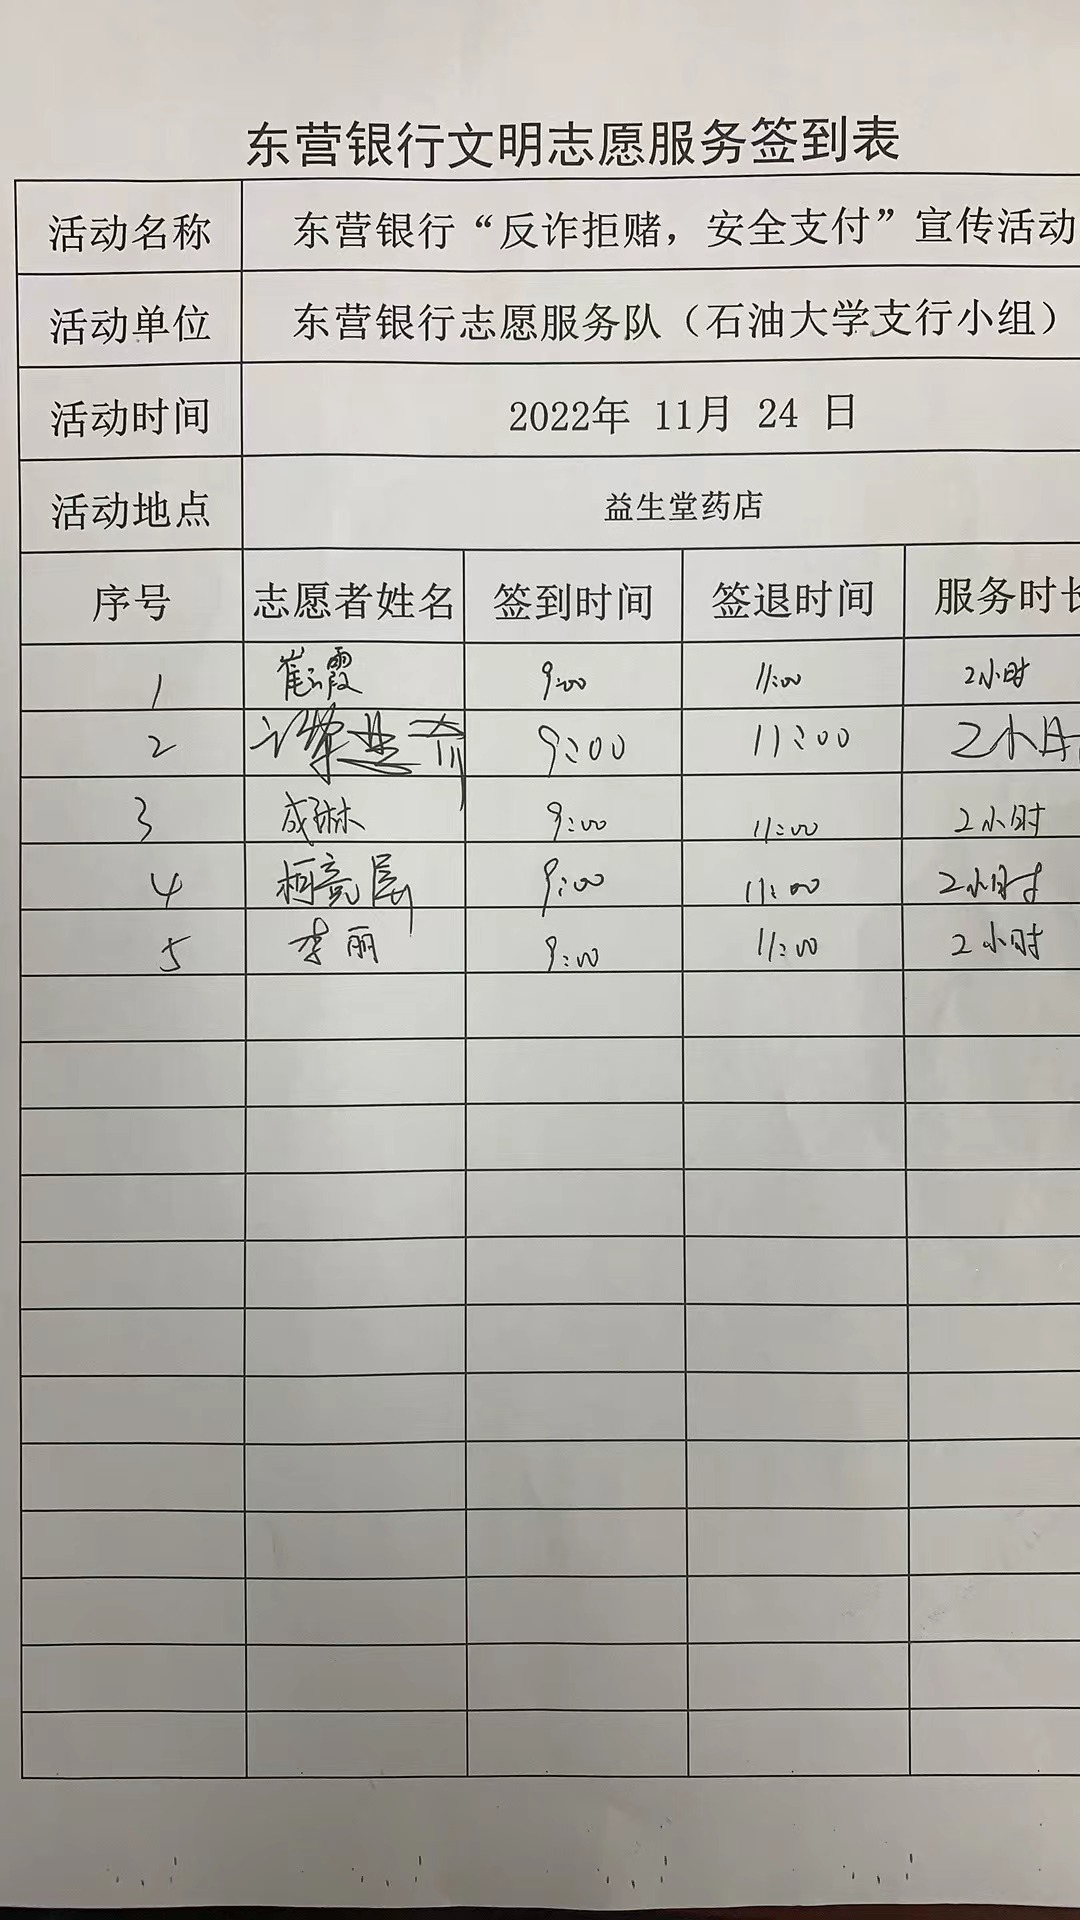 东营银行文明志愿服务签到表
活动名称 东营银行“反诈拒赌，安全支付”宣传活动
活动单位 东营银行志愿服务队（石油大学支行小组）
活动时间 2022年 11月 24 日
活动地点 益生堂药店
序号 志愿者姓名 签到时间 签退时间 服务时长
1 崔 霞 9:00 11:00 2小时
2 9:00 11:00 2小时
3 成琳 9:00 11:00 2小时
4 9:00 11:00 2小时
5 李丽 9:00 11:00 2小时